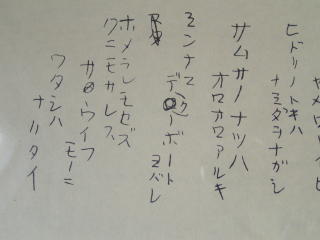 ヒドリノトキハ
ナミダヲナガシ
サムサノナツハ
オロオロアルキ
ミンナニ
デクノボート
ヨバレ
ホメラレモセズ
クニモサレズ
サウウイフ
モノニ
ワタシハ
ナリタイ